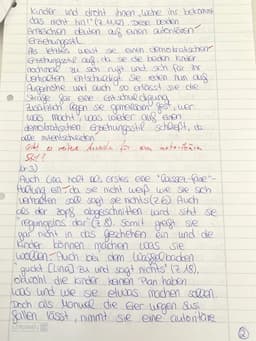 Kinder und droht ihnen „wehe ihr bekommt
das nicht hin!" (Z.11,12). Diese beiden
Ansichten deuten auf einen autoritären
Erziehungsstil.
Als letztes weist sie einen demokratischen
Erziehungsstil auf, da sie die beiden Kinder
nochmal zu sich ruft und sich für ihr
Verhalten entschuldigt. Sie reden nun auf
Augenhöhe und auch so erlässt sie die
Strafe für eine Entschuldigung.
Zusätzlich legen sie gemeinsam fest, wer
was macht, was wieder auf einen
demokratischen Erziehungsstil schließt, da
alle mitentscheiden.
Gibt es weitere für einen autoritären
Stil?
Nr. 3)
Auch Lina hält als erstes eine "Laissez-faire"-
Haltung ein, da sie nicht weiß wie sie sich
verhalten soll sagt sie nichts (Z.6). Auch
als der Zopf abgeschnitten wird sitzt sie
"regungslos da" (Z.8). Somit greift sie
gar nicht in das Geschehen ein und die
Kinder können machen was sie
wollen. Auch bei dem Waffelbacken
"guckt [Lina] zu und sagt nichts" (Z.18),
obwohl die Kinder keinen Plan haben
was und wie sie etwas machen sollen.
Doch als Manuel die Eier wegen Susi
fallen lässt, nimmt sie eine autoritäre
2